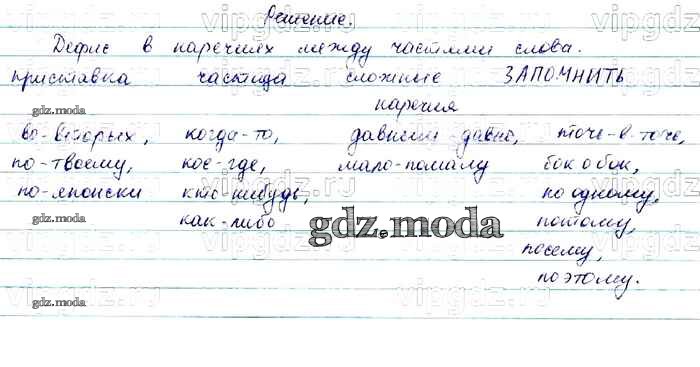 Решение.
Дефис в наречиях между частями слова.
приставка частица сложные ЗАПОМНИТЬ
наречия
gdz.moda
во-вторых, когда-то, давным-давно, точь-в-точь,
по-твоему, кое-где, мало-помалу бок о бок,
по-японски кто-нибудь, по одному,
gdz.moda как-либо gdz.moda потому,
посему,
gdz.moda поэтому.